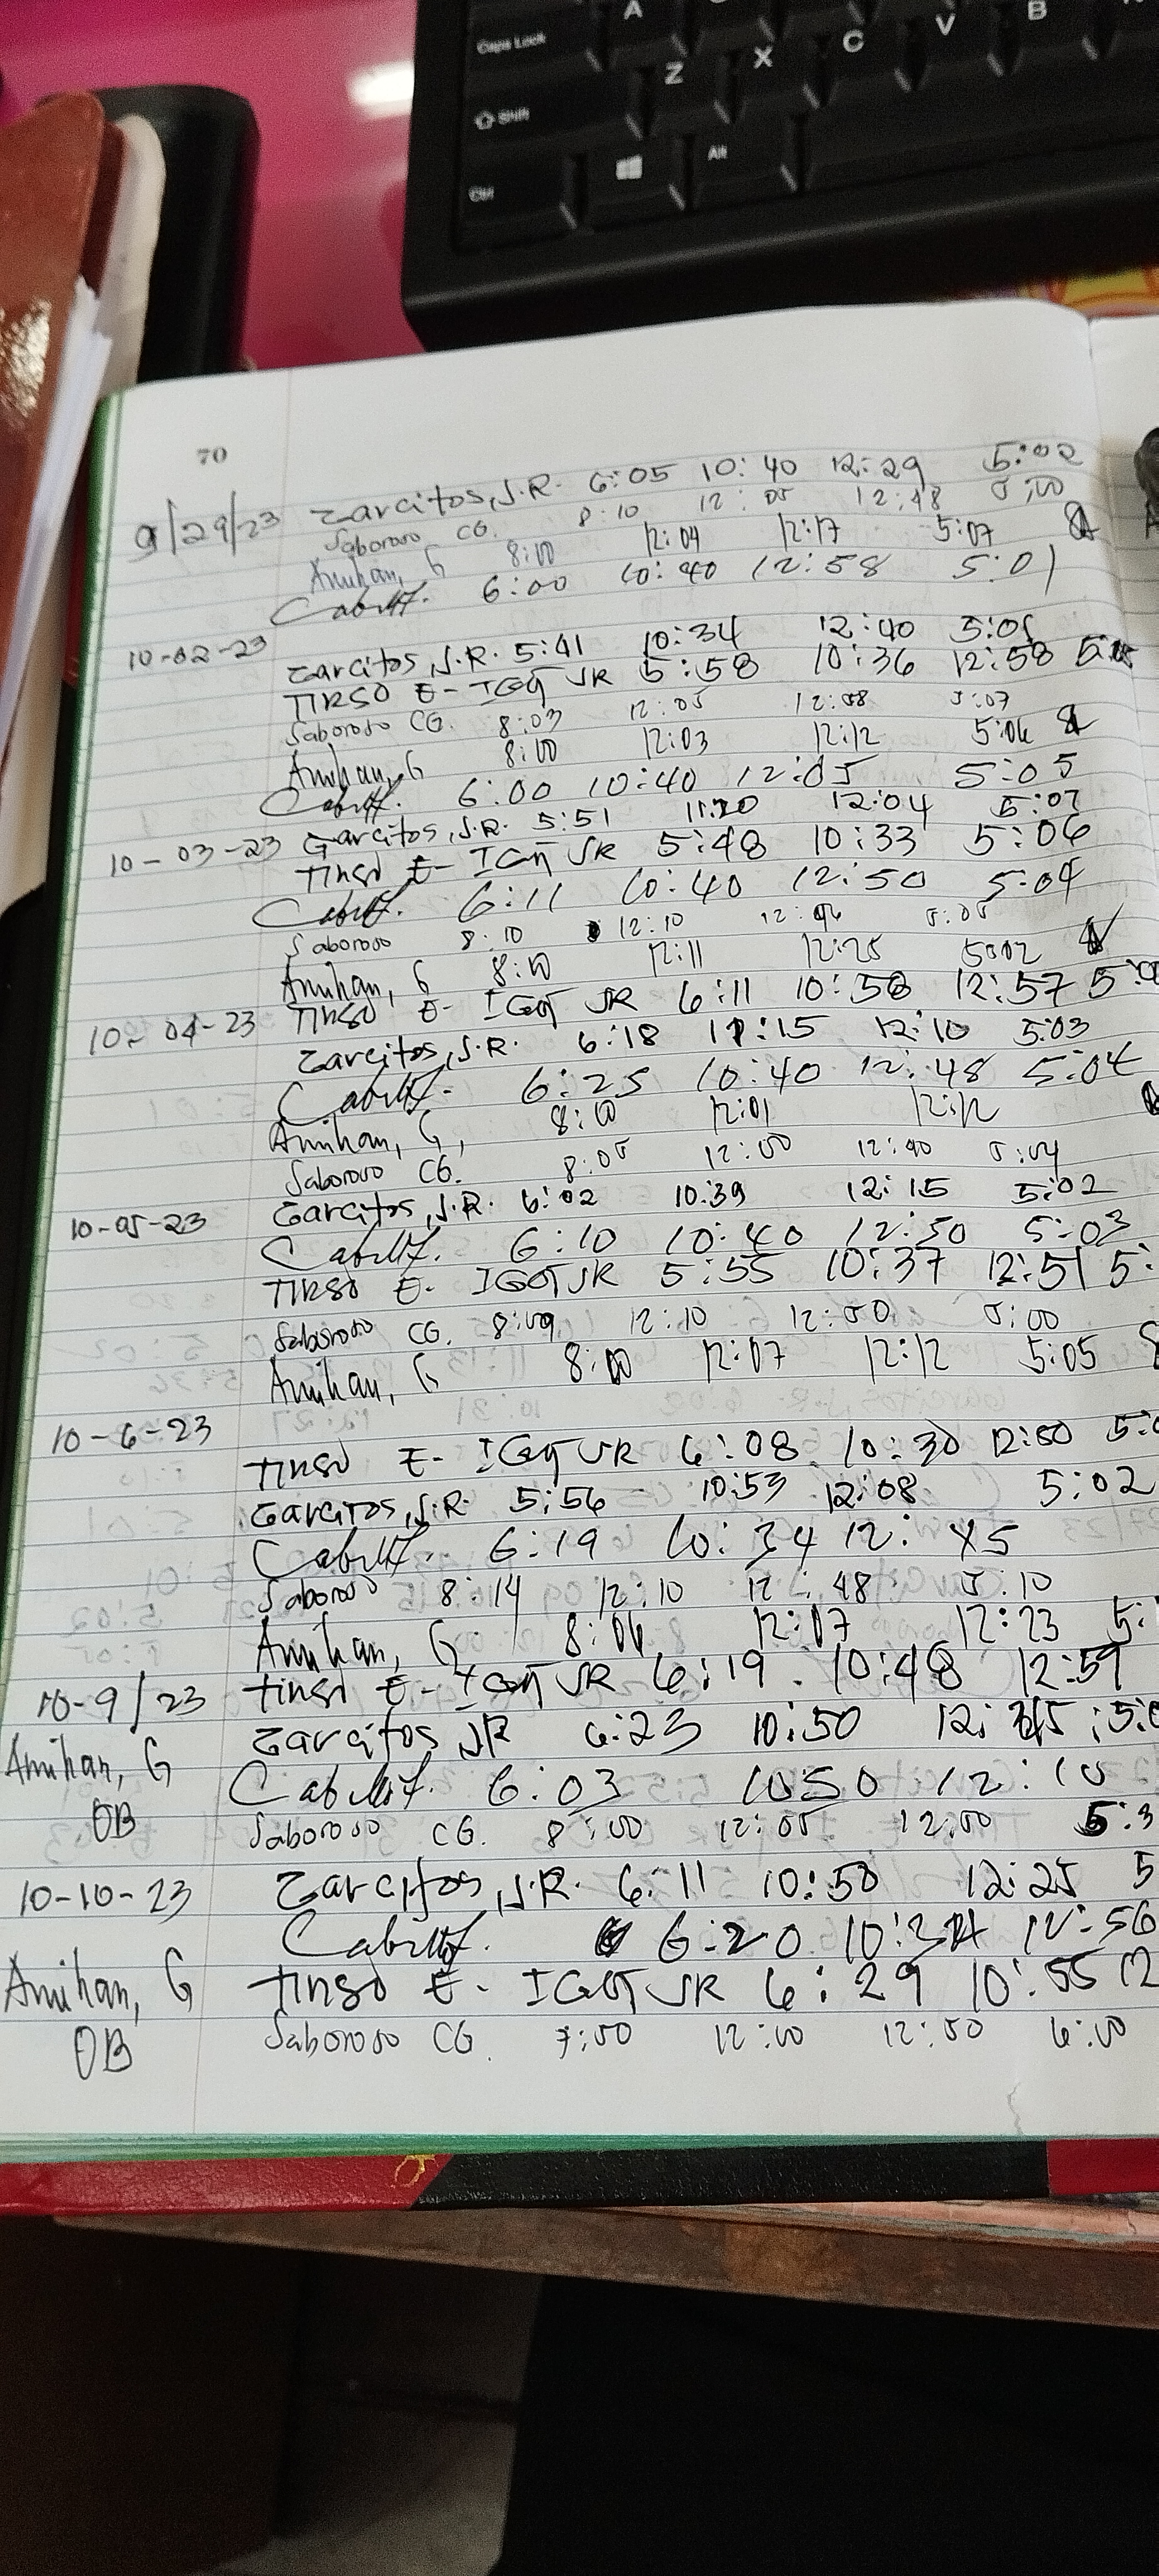 A
V
B
Caps Lock
Z
X
C
Shift
Alt
Ctrl
70
9/29/23 Garcitos, J.R. 6:05 10:40 12:29 5:02
Saboroso CG. 8:10 12:05 12:48 5:00
Amihan, G 8:00 12:04 12:17 5:07
6:00 10:40 12:58 5:01
10-02-23
Garcitos, J.R. 5:41 10:34 12:40 5:05
TIRSO E- IGOT JR 5:58 10:36 12:58
Saboroso CG. 8:03 12:05 12:58 5:07
Amihan, G 8:00 12:03 12:12 5:06
6:00 10:40 12:05 5:05
10-03-23 Garcitos, J.R. 5:51 11:20 12:04 5:07
TIRSO E- IGOT JR 5:48 10:33 5:06
6:11 10:40 12:50 5:04
Saboroso 8:10 12:10 5:05
Amihan, G 8:10 12:11 12:25 5:02
10-04-23 TIRSO E- IGOT JR 6:11 10:58 12:57
Garcitos, J.R. 6:18 11:15 12:10 5:03
6:25 10:40 12:48 5:04
Amihan, G, 8:00 12:01 12:12
Saboroso CG. 8:05 12:00 12:40 5:04
10-05-23 Garcitos, J.R. 6:02 10:39 12:15 5:02
6:10 10:40 12:50 5:03
TIRSO E- IGOT JR 5:55 10:37 12:51 5:
Saboroso CG. 8:09 12:10 12:50 5:00
Amihan, G 8:00 12:07 12:12 5:05
10-6-23
TIRSO E- IGOT JR 6:08 10:30 12:50
Garcitos, J.R. 5:56 10:53 12:08 5:02
6:19 10:34 12:45
Saboroso 8:14 12:10 12:48 5:10
Amihan, G. 8:06 12:07 12:23 5:
10-9/23 TIRSO E- IGOT JR 6:19 10:48 12:59
Garcitos JR 6:23 10:50
Amihan, G 6:03 10:50 12:10
OB Saboroso CG. 8:00 12:05 12:50 5:3
10-10-23 Garcitos, J.R. 6:11 10:50 12:25 5
6:20 12:56
Amihan, G TIRSO E- IGOT JR 6:29 10:55 12
OB Saboroso CG. 7:50 12:00 12:50 6:00